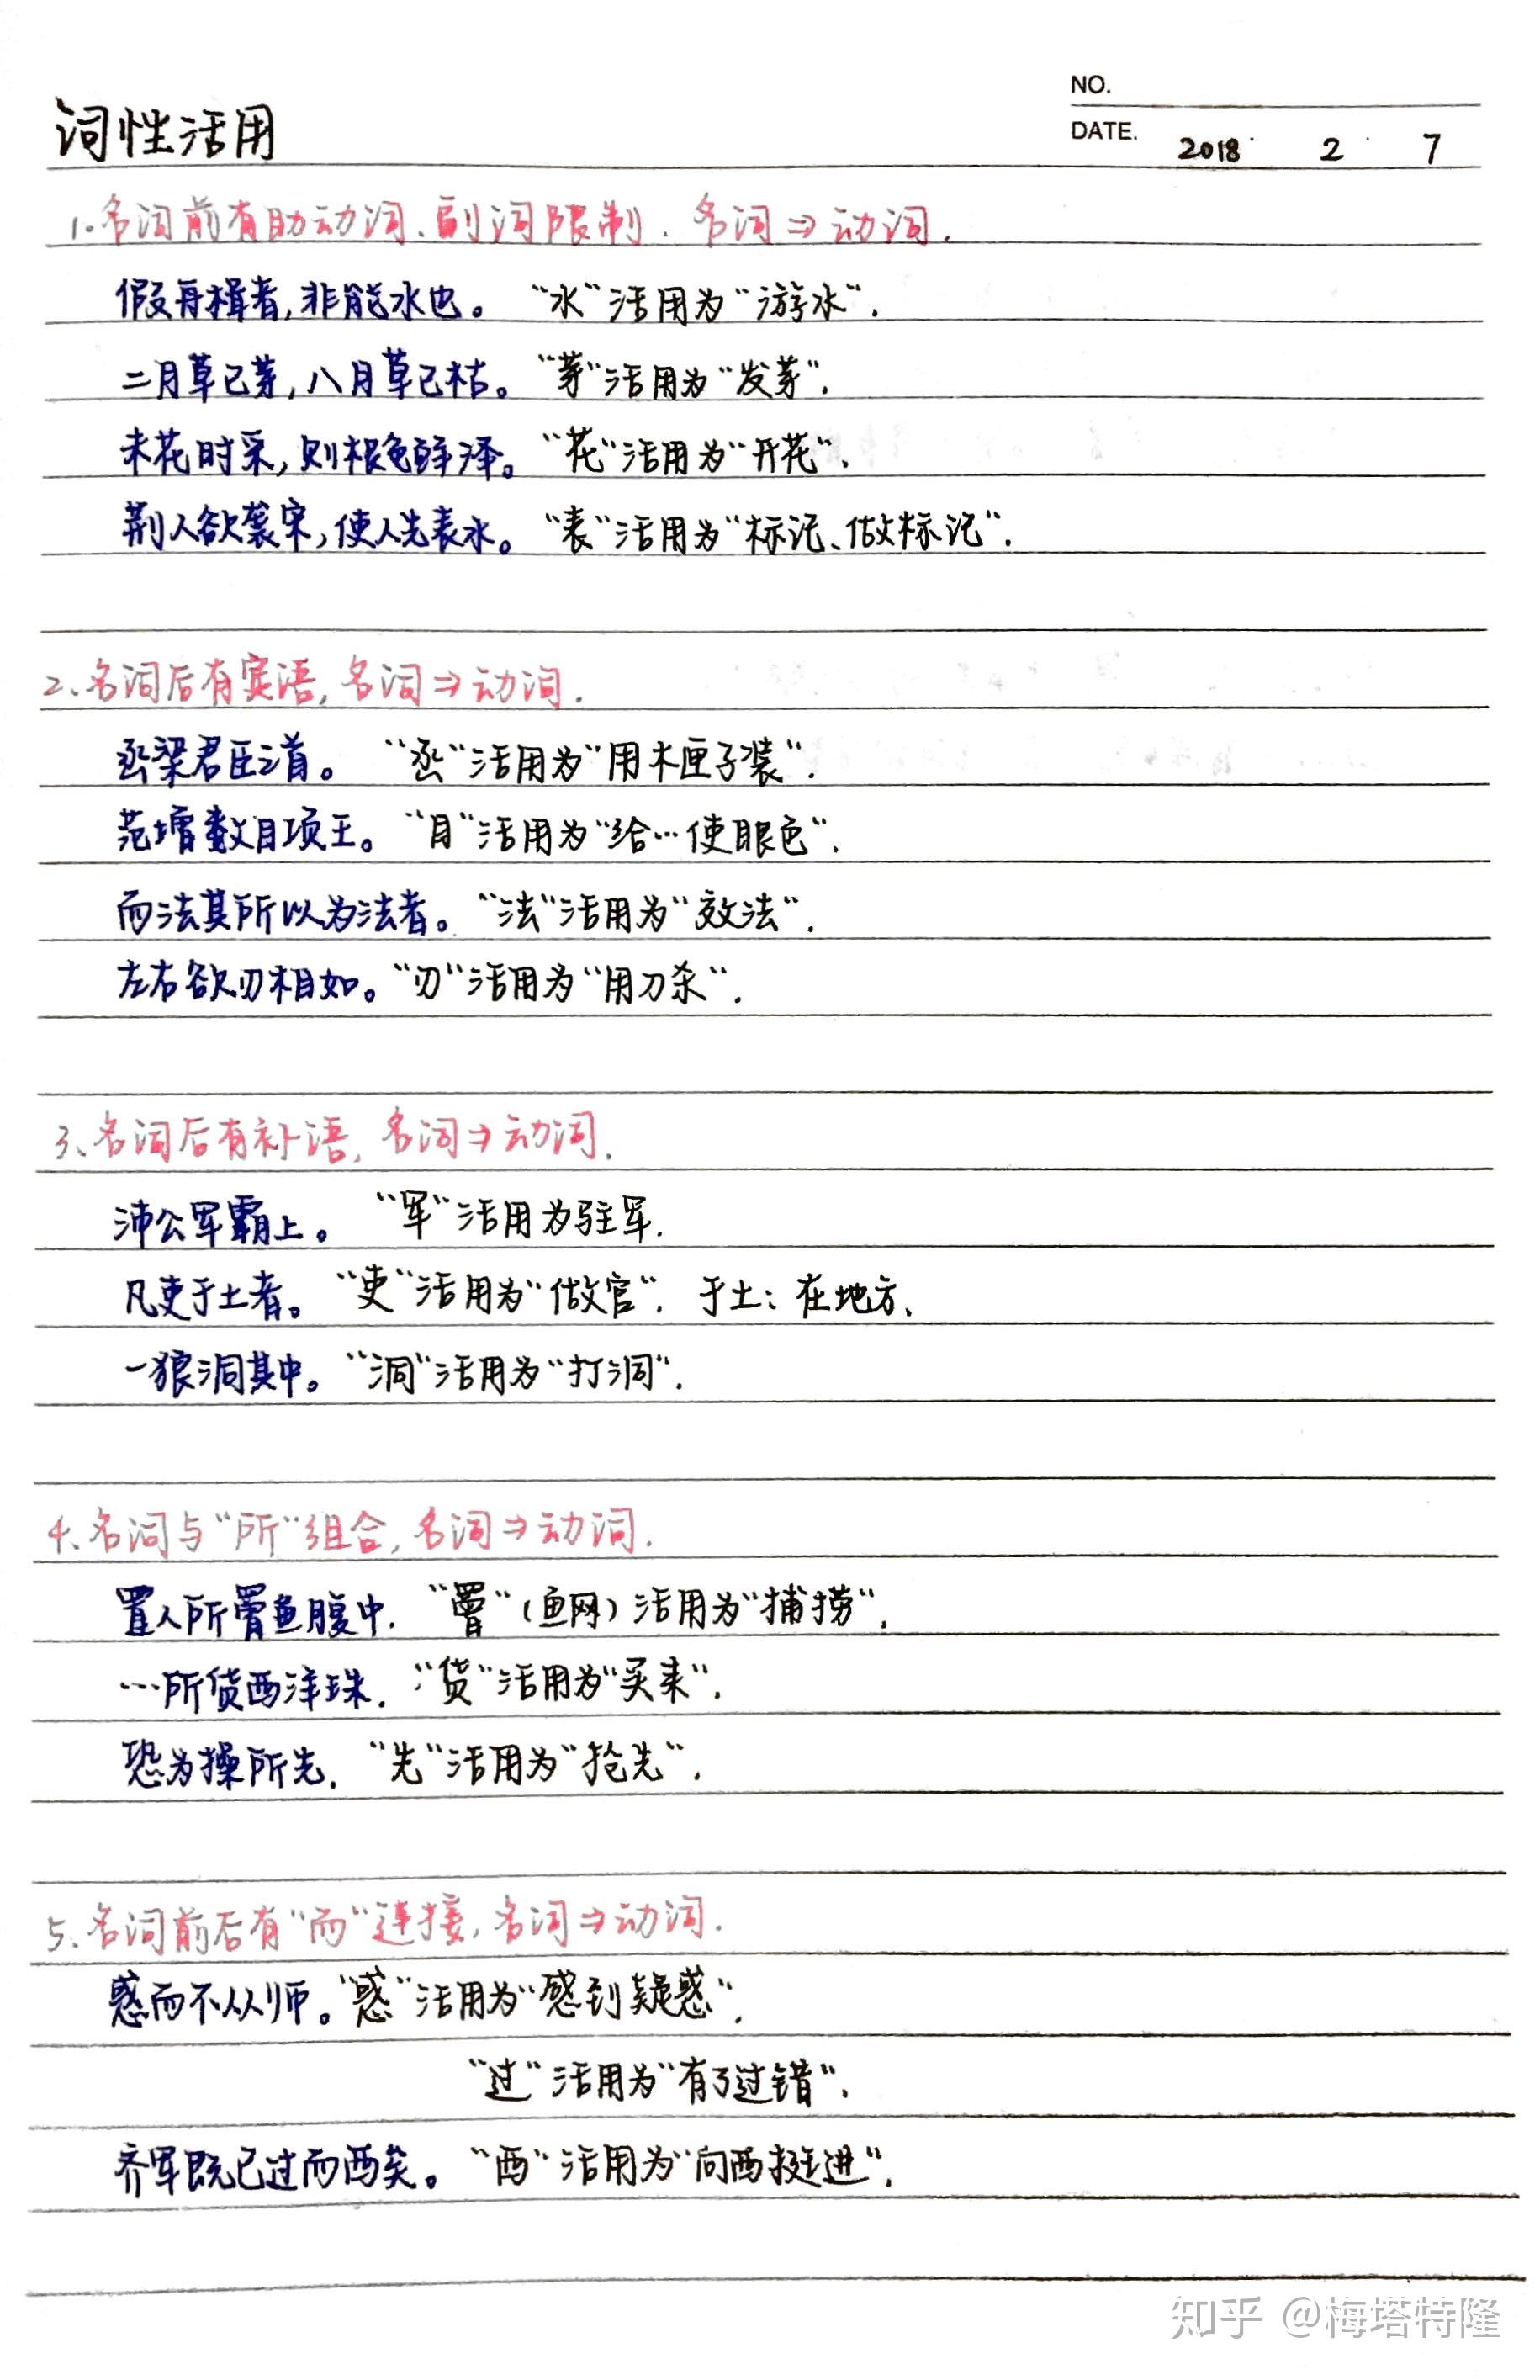 NO.
词性活用
DATE. 2018 2 7
1.名词前有助动词、副词限制. 名词⇒动词.
假舟楫者,非能水也。 “水”活用为“游水”.
二月草已芽,八月草已枯。 “芽”活用为“发芽”.
未花时采,则根色鲜泽。 “花”活用为“开花”.
荆人欲袭宋,使人先表水。 “表”活用为“标记、做标记”.
2、名词后有宾语,名词⇒动词.
函梁君臣之首。 “函”活用为“用木匣子装”.
范增数目项王。 “目”活用为“给…使眼色”.
而法其所以为法者。 “法”活用为“效法”.
左右欲刃相如。“刃”活用为“用刀杀”.
3、名词后有补语,名词⇒动词.
沛公军霸上。 “军”活用为驻军.
凡吏于土者。 “吏”活用为“做官”. 于土:在地方、
一狼洞其中。 “洞”活用为“打洞”.
4、名词与“所”组合,名词⇒动词.
置人所罾鱼腹中. “罾”(鱼网)活用为“捕捞”.
…所货西洋珠. “货”活用为“买来”.
恐为操所先. “先”活用为“抢先”.
5、名词前后有“而”连接,名词⇒动词.
惑而不从师。“惑”活用为“感到疑惑”.
“过”活用为“有了过错”.
齐军既已过而西矣。 “西”活用为“向西挺进”.
知乎 @梅塔特隆